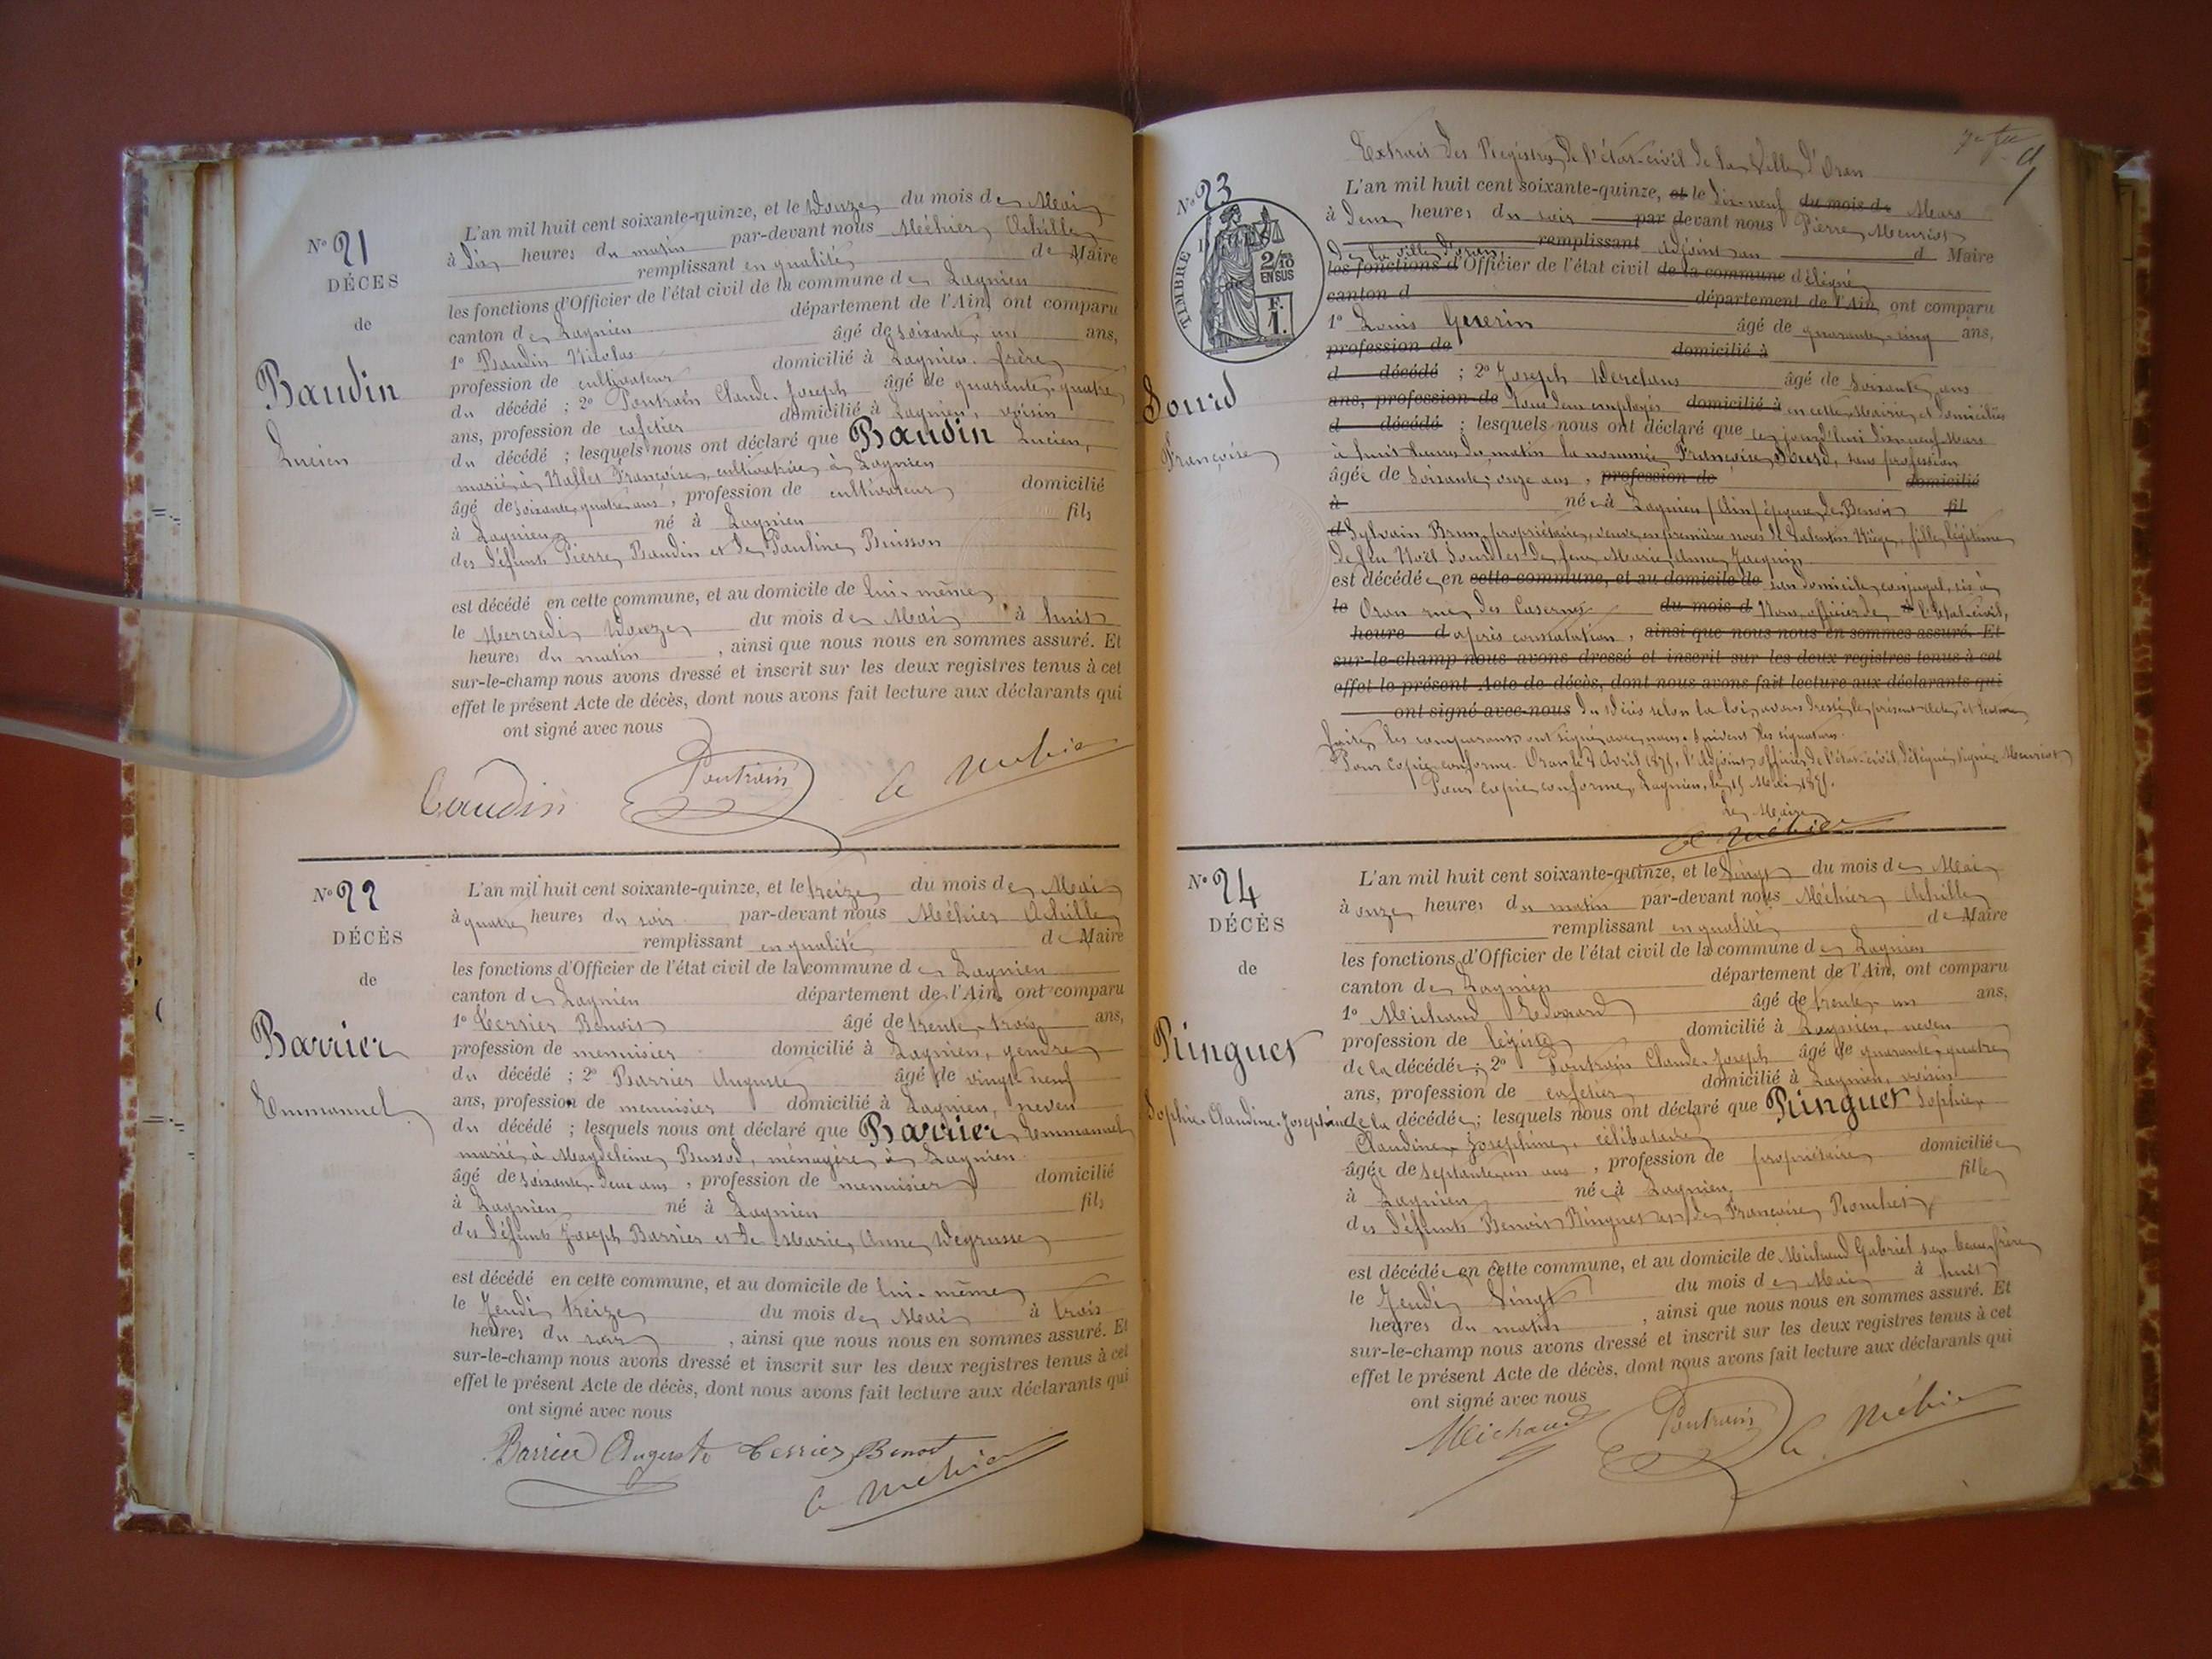 N° 21
DÉCÈS
de
Baudin
Lucien
L'an mil huit cent soixante-quinze, et le Douze du mois de Mai
à Dix heures du matin par-devant nous Méhier Achille
remplissant en qualité de Maire
les fonctions d'Officier de l'état civil de la commune de Lagnieu
canton de Lagnieu département de l'Ain, ont comparu
1° Baudin Nicolas âgé de soixante un ans,
profession de cultivateur domicilié à Lagnieu, frère
du décédé ; 2° Poutrain Claude-Joseph âgé de quarante-quatre
ans, profession de cafetier domicilié à Lagnieu, voisin
du décédé ; lesquels nous ont déclaré que Baudin Lucien,
marié à Nallet Françoise, cultivatrice à Lagnieu
âgé de soixante quatre ans, profession de cultivateur domicilié
à Lagnieu né à Lagnieu fils
des défunts Pierre Baudin et de Pauline Buisson
est décédé en cette commune, et au domicile de lui-même
le Mercredi Douze du mois de Mai à huit
heures du matin, ainsi que nous nous en sommes assuré. Et
sur-le-champ nous avons dressé et inscrit sur les deux registres tenus à cet
effet le présent Acte de décès, dont nous avons fait lecture aux déclarants qui
ont signé avec nous
Baudin Poutrain A Méhier
N° 22
DÉCÈS
de
Barrier
Emmanuel
L'an mil huit cent soixante-quinze, et le treize du mois de Mai
à quatre heures du soir par-devant nous Méhier Achille
remplissant en qualité de Maire
les fonctions d'Officier de l'état civil de la commune de Lagnieu
canton de Lagnieu département de l'Ain, ont comparu
1° Terrier Benoit âgé de trente trois ans,
profession de menuisier domicilié à Lagnieu, gendre
du décédé ; 2° Barrier Auguste âgé de vingt neuf
ans, profession de menuisier domicilié à Lagnieu, neveu
du décédé ; lesquels nous ont déclaré que Barrier Emmanuel
marié à Magdeleine Bussod, ménagère à Lagnieu
âgé de soixante-deux ans, profession de menuisier domicilié
à Lagnieu né à Lagnieu fils
des défunts Joseph Barrier et de Marie Anne Degrusse
est décédé en cette commune, et au domicile de lui-même
le Jeudi treize du mois de Mai à trois
heures du soir, ainsi que nous nous en sommes assuré. Et
sur-le-champ nous avons dressé et inscrit sur les deux registres tenus à cet
effet le présent Acte de décès, dont nous avons fait lecture aux déclarants qui
ont signé avec nous
Barrier Auguste Terrier Benoit
A Méhier
Extrait des Registres de l'état-civil de la Ville d'Oran
N° 23
TIMBRE
2/10 EN SUS
F. 1.
Sourd
Françoise
L'an mil huit cent soixante-quinze, et le Dix-neuf du mois de Mars
à Deux heures du soir par devant nous Pierre Meurist
de la ville d'Oran remplissant adjoint au d Maire
les fonctions d'Officier de l'état civil de la commune délégué
canton d département de l'Ain, ont comparu
1° Louis Guerin âgé de quarante-cinq ans,
profession de domicilié à
d décédé ; 2° Joseph Derclans âgé de soixante ans
ans, profession de tous deux employés domicilié à en cette Mairie et domiciliés
d décédé ; lesquels nous ont déclaré que cejourd'hui Dix-neuf Mars
à huit heures du matin la nommée Françoise Sourd, sans profession
âgée de soixante-onze ans, profession de domicilié
à née à Lagnieu (Ain) épouse de Benoit fil
d Sylvain Brun, propriétaire, veuve en première noces de Valentin Niège, fille légitime
de feu Noël Sourd et de feue Marie Anne Jacquin
est décédée en cette commune, et au domicile de son domicile conjugal, sis à
le Oran rue des Casernes du mois d Nous, officier de l'état-civil,
heure d après constatation, ainsi que nous nous en sommes assuré. Et
sur-le-champ nous avons dressé et inscrit sur les deux registres tenus à cet
effet le présent Acte de décès, dont nous avons fait lecture aux déclarants qui
ont signé avec nous du décès selon la loi, avons dressé le présent acte, et lecture
faite, les comparants ont signé avec nous. Suivent les signatures
Pour copie conforme. Oran le 2 Avril 1875, l'adjoint, officier de l'état-civil délégué, signé Meurist
Pour copie conforme, Lagnieu, le 15 Mai 1875.
Le Maire
A Méhier
N° 24
DÉCÈS
de
Ringuet
Sophie-Claudine-Joséphine
L'an mil huit cent soixante-quinze, et le Vingt du mois de Mai
à onze heures du matin par-devant nous Méhier Achille
remplissant en qualité de Maire
les fonctions d'Officier de l'état civil de la commune de Lagnieu
canton de Lagnieu département de l'Ain, ont comparu
1° Michaud Edouard âgé de trente-un ans,
profession de légiste domicilié à Lagnieu, neveu
de la décédée ; 2° Poutrain Claude-Joseph âgé de quarante-quatre
ans, profession de cafetier domicilié à Lagnieu, voisin
de la décédée ; lesquels nous ont déclaré que Ringuet Sophie
Claudine Joséphine, célibataire
âgée de septante un ans, profession de propriétaire domiciliée
à Lagnieu née à Lagnieu fille
des défunts Benoit Ringuet et de Françoise Rouchet
est décédée en cette commune, et au domicile de Michaud Gabriel son beau-frère
le Jeudi Vingt du mois de Mai à huit
heures du matin, ainsi que nous nous en sommes assuré. Et
sur-le-champ nous avons dressé et inscrit sur les deux registres tenus à cet
effet le présent Acte de décès, dont nous avons fait lecture aux déclarants qui
ont signé avec nous
Michaud Poutrain A Méhier